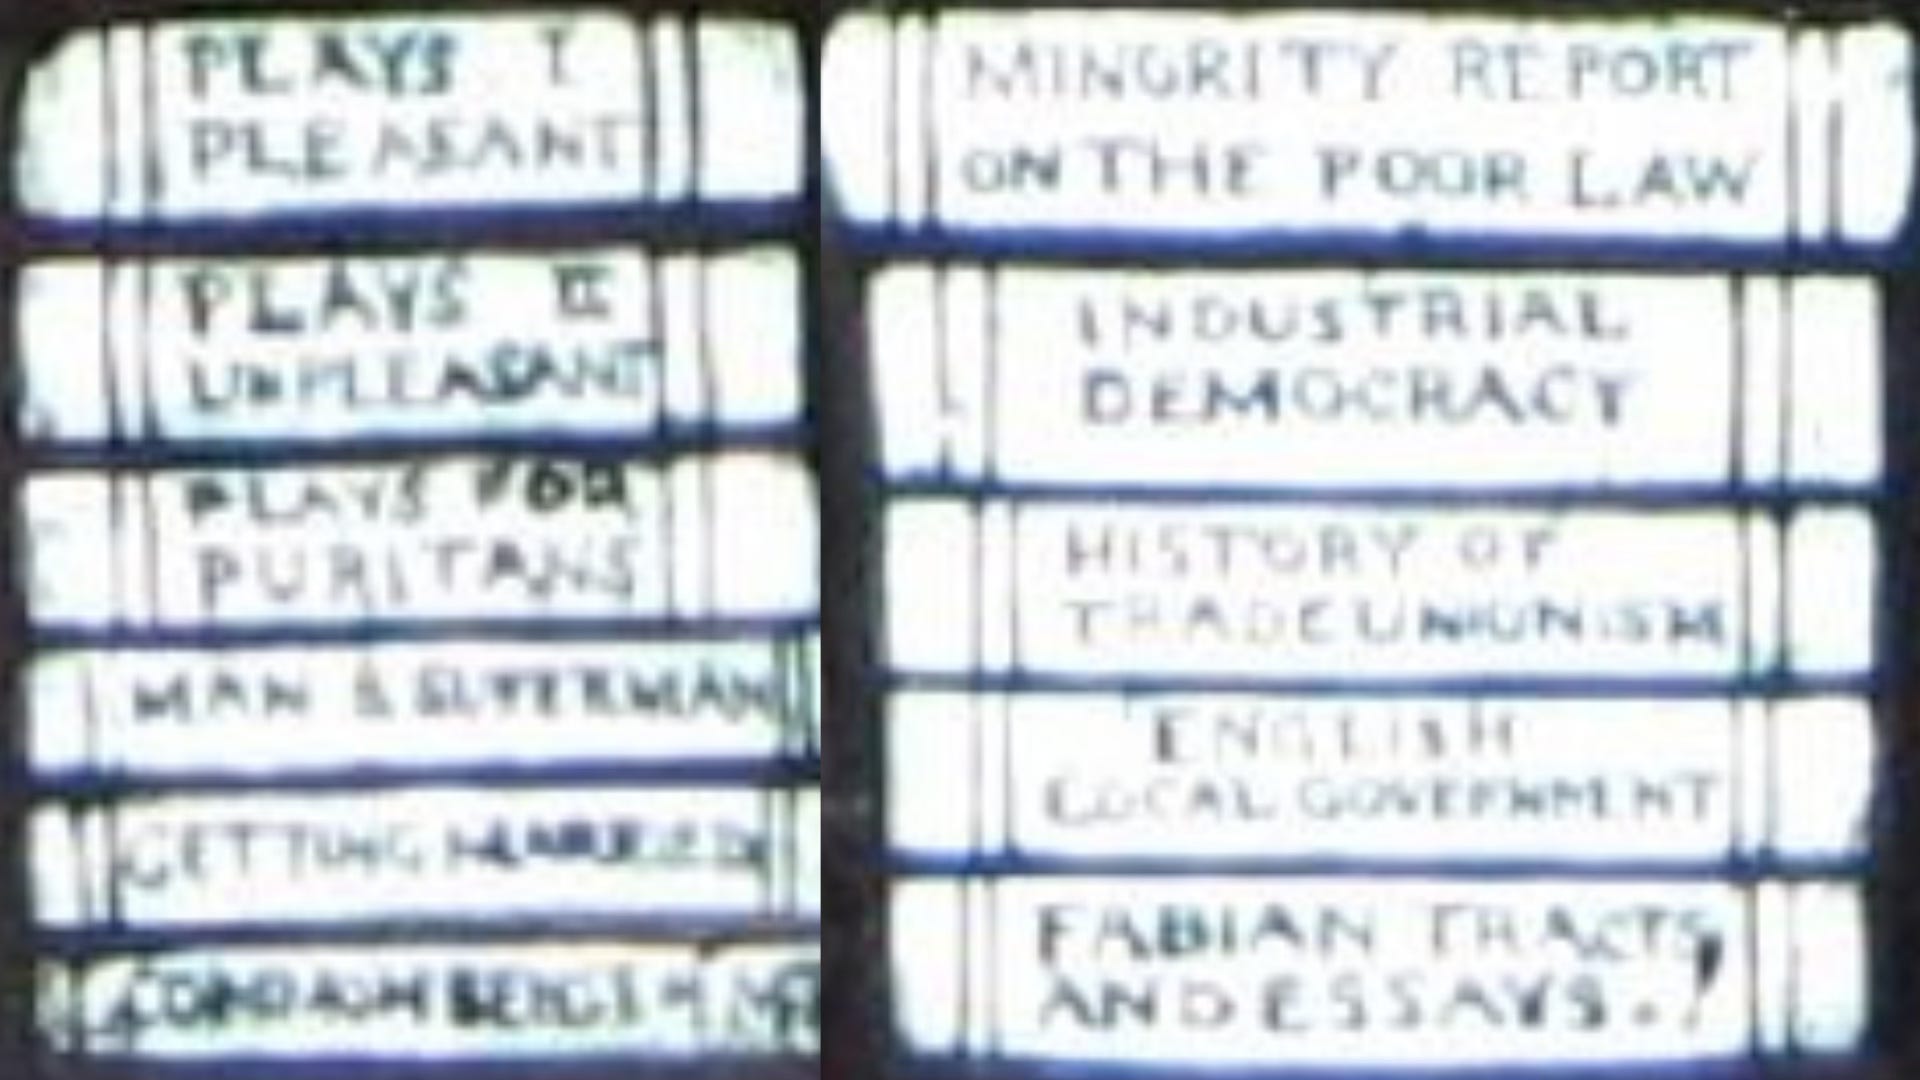 PLAYS I
PLEASANT
PLAYS II
UNPLEASANT
PLAYS FOR
PURITANS
MAN & SUPERMAN
GETTING MARRIED
MINORITY REPORT
ON THE POOR LAW
INDUSTRIAL
DEMOCRACY
HISTORY OF
TRADE UNIONISM
ENGLISH
LOCAL GOVERNMENT
FABIAN TRACTS
AND ESSAYS.